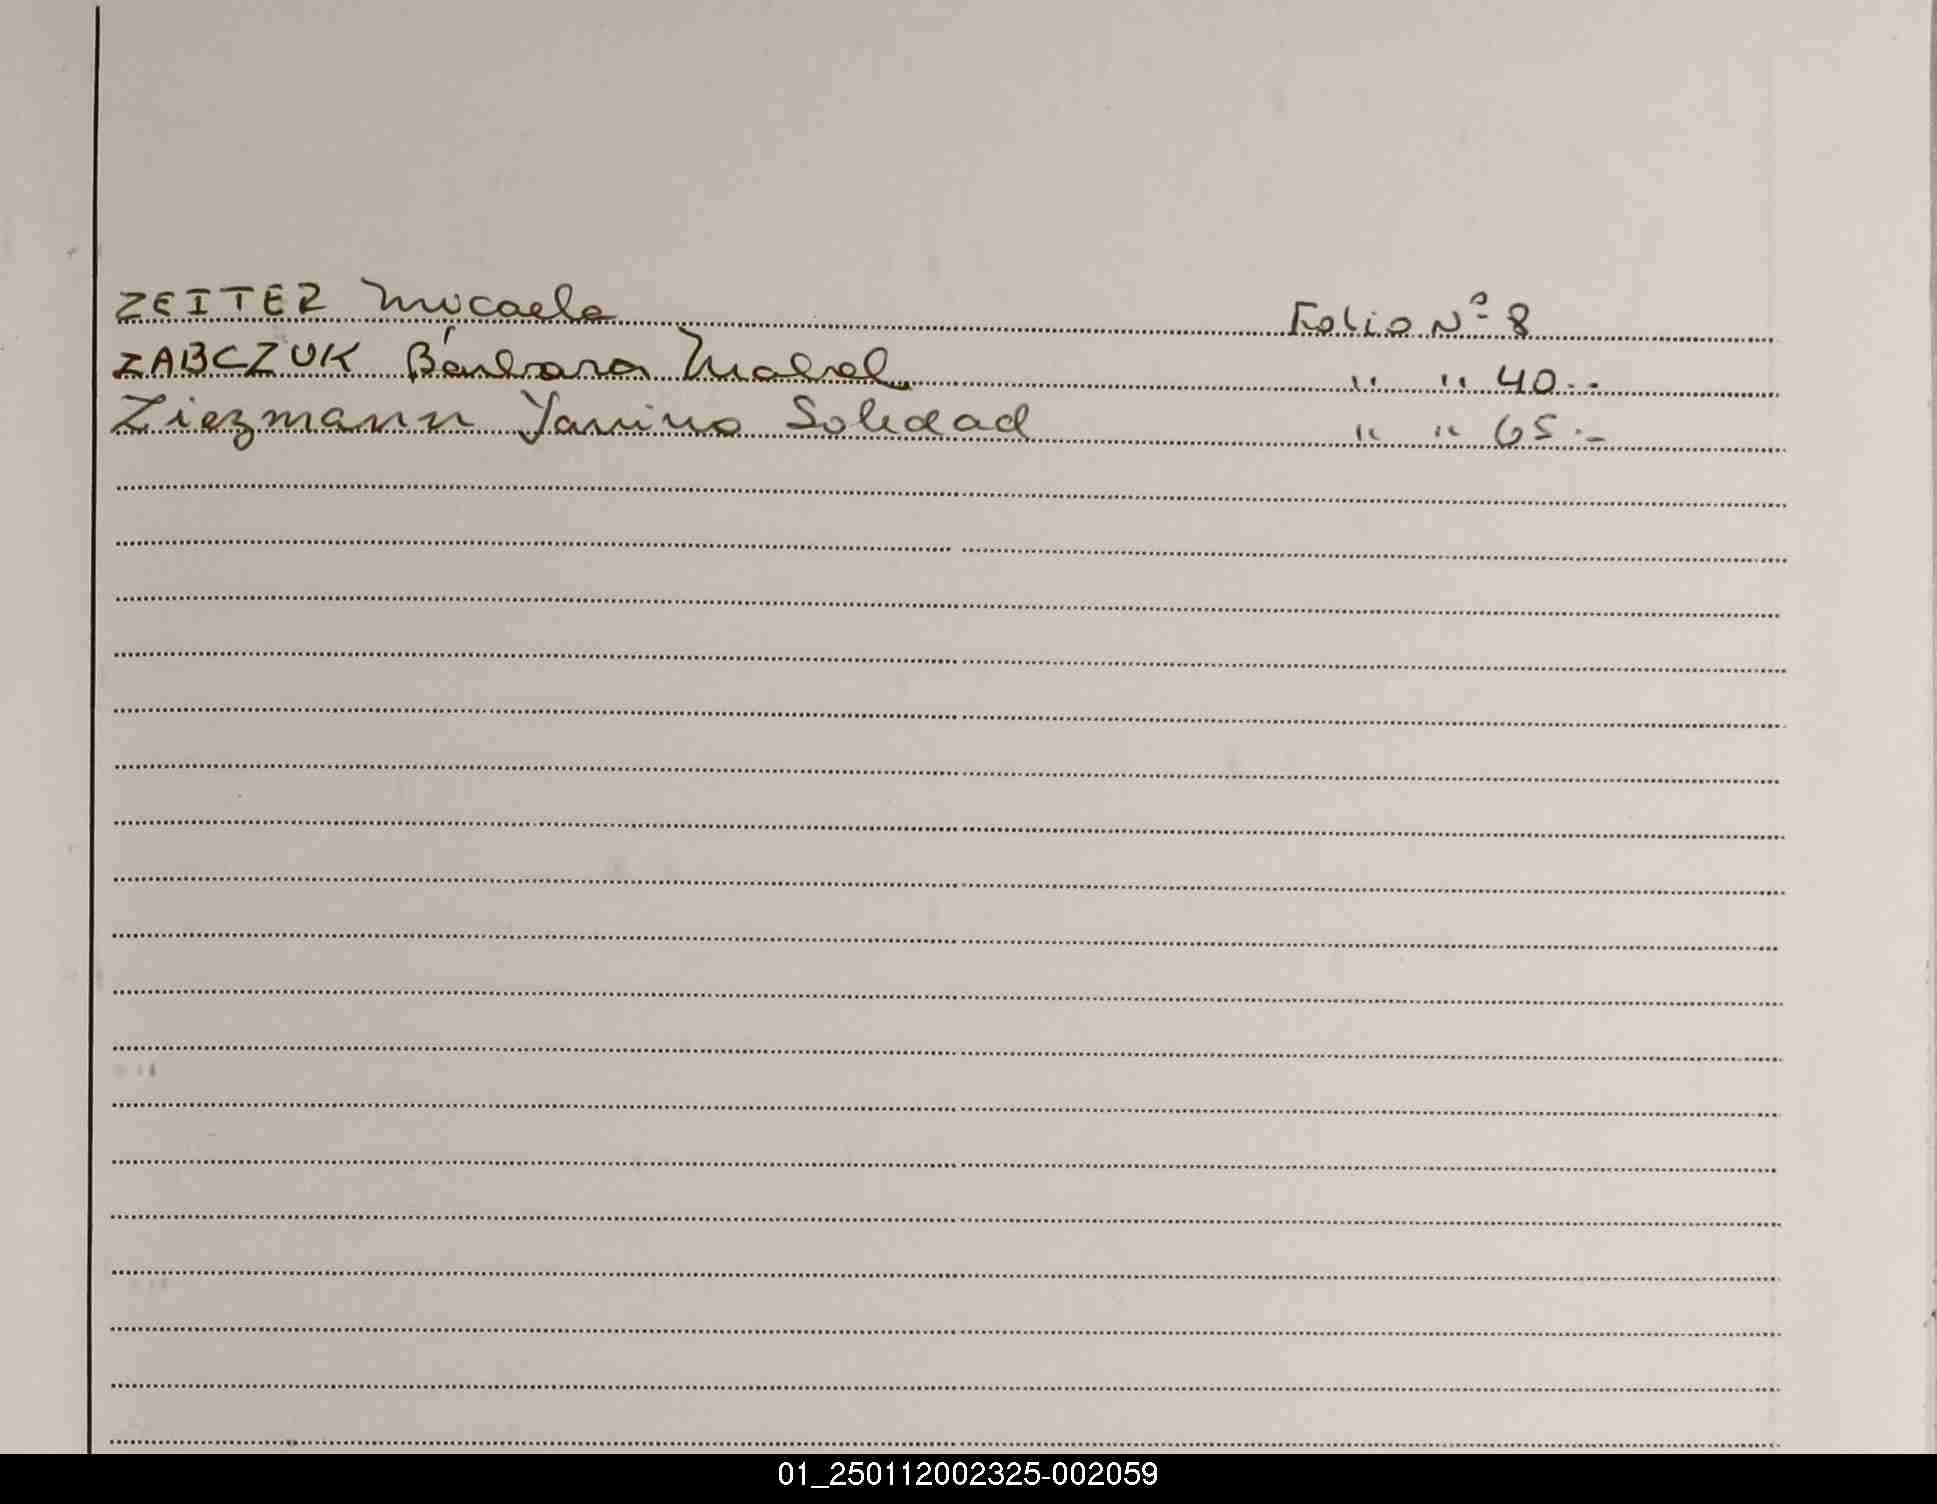 ZEITER Micaela Folio Nº 8
ZABCZUK Bárbara Mabel " " 40..
Ziezmann Yanina Soledad " " 65.-
01_250112002325-002059